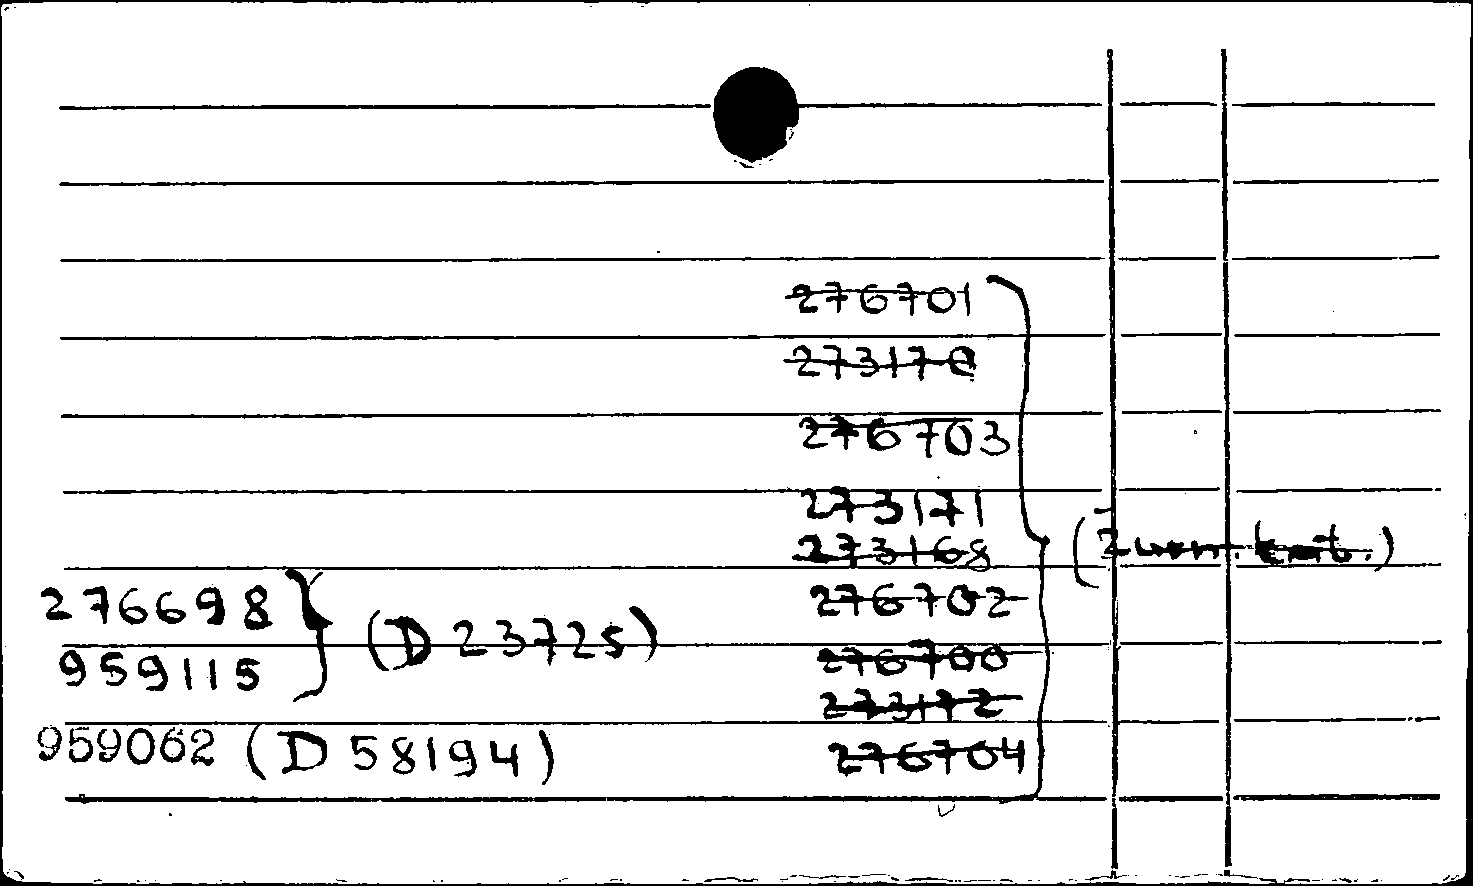 276701
273170
276703
273171
273168
276702
276700
273172
276704
276698
959115
(D 23725)
959062 (D 58194)